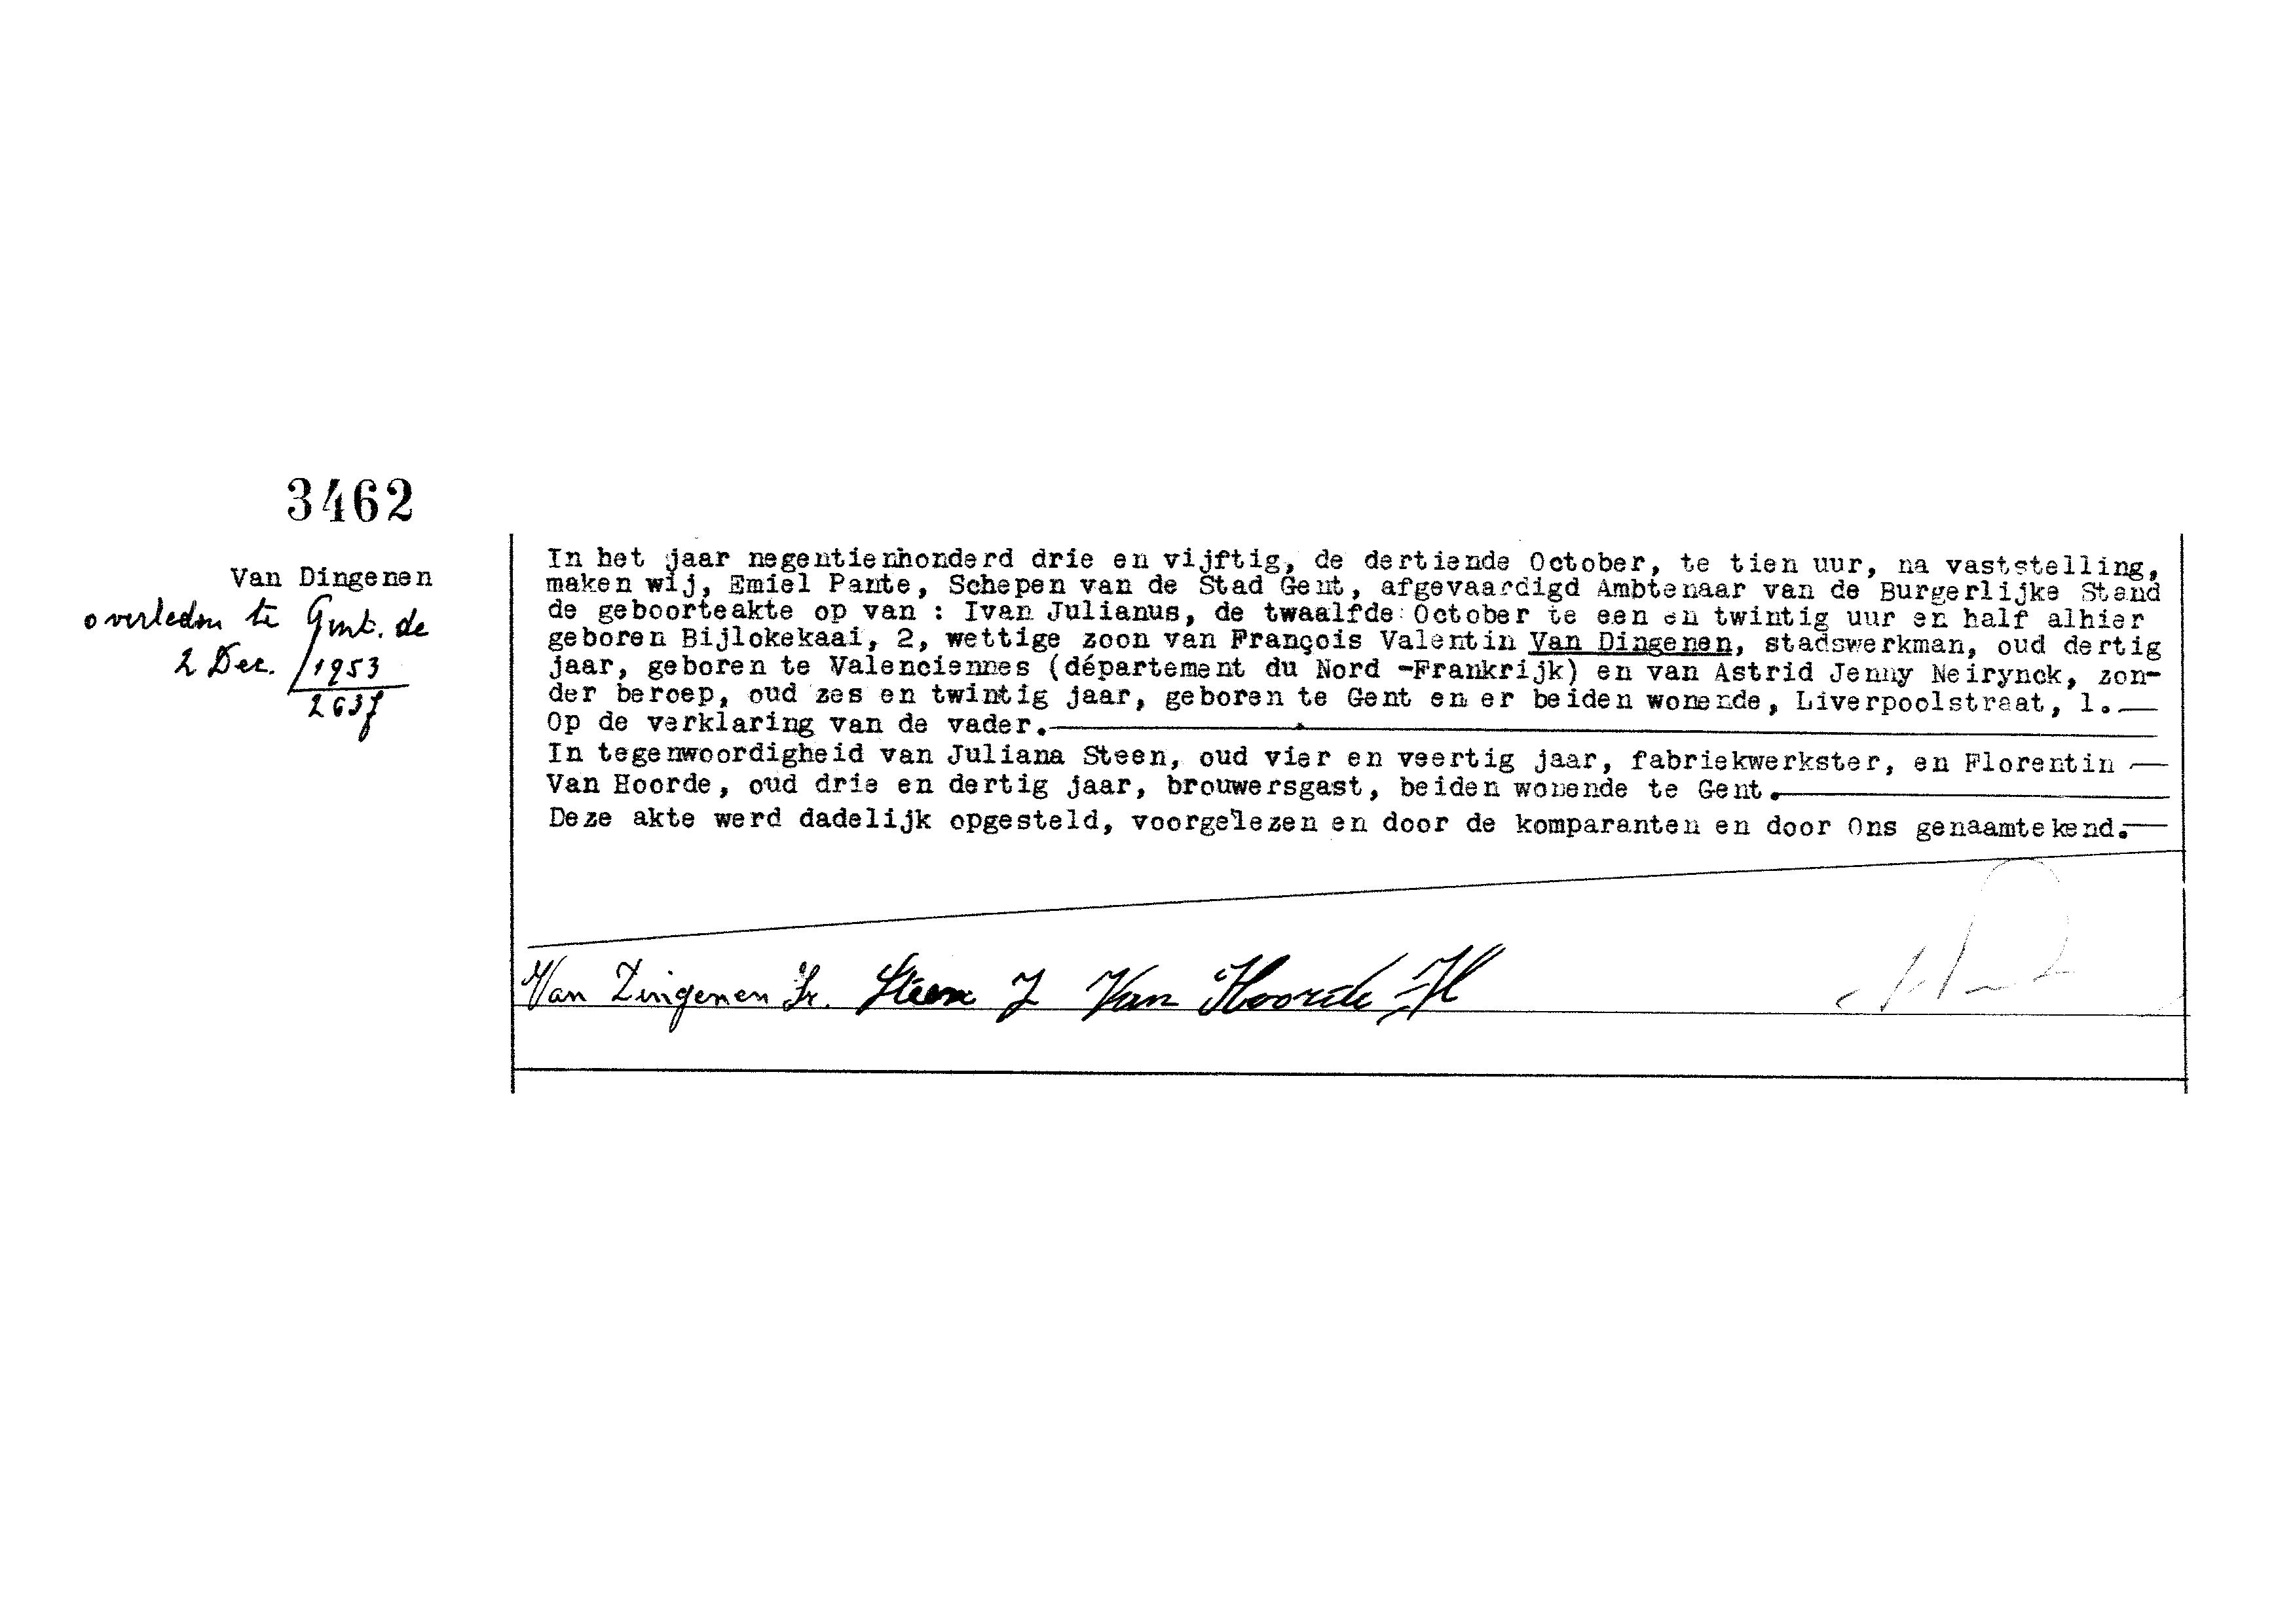 3462
Van Dingenen
overleden te Gent. de
2 Dec. /1953
2637
In het jaar negentienhonderd drie en vijftig, de dertiende October, te tien uur, na vaststelling,
maken wij, Emiel Pante, Schepen van de Stad Gent, afgevaardigd Ambtenaar van de Burgerlijke Stand
de geboorteakte op van : Ivan Julianus, de twaalfde October te een en twintig uur en half alhier
geboren Bijlokekaai, 2, wettige zoon van François Valentin Van Dingenen, stadswerkman, oud dertig
jaar, geboren te Valenciennes (département du Nord -Frankrijk) en van Astrid Jenny Neirynck, zon-
der beroep, oud zes en twintig jaar, geboren te Gent en er beiden wonende, Liverpoolstraat, 1.
Op de verklaring van de vader.
In tegenwoordigheid van Juliana Steen, oud vier en veertig jaar, fabriekwerkster, en Florentin
Van Hoorde, oud drie en dertig jaar, brouwersgast, beiden wonende te Gent.
Deze akte werd dadelijk opgesteld, voorgelezen en door de komparanten en door Ons genaamtekend.
Van Dingenen Fr. Steen J Van Hoorde Fl